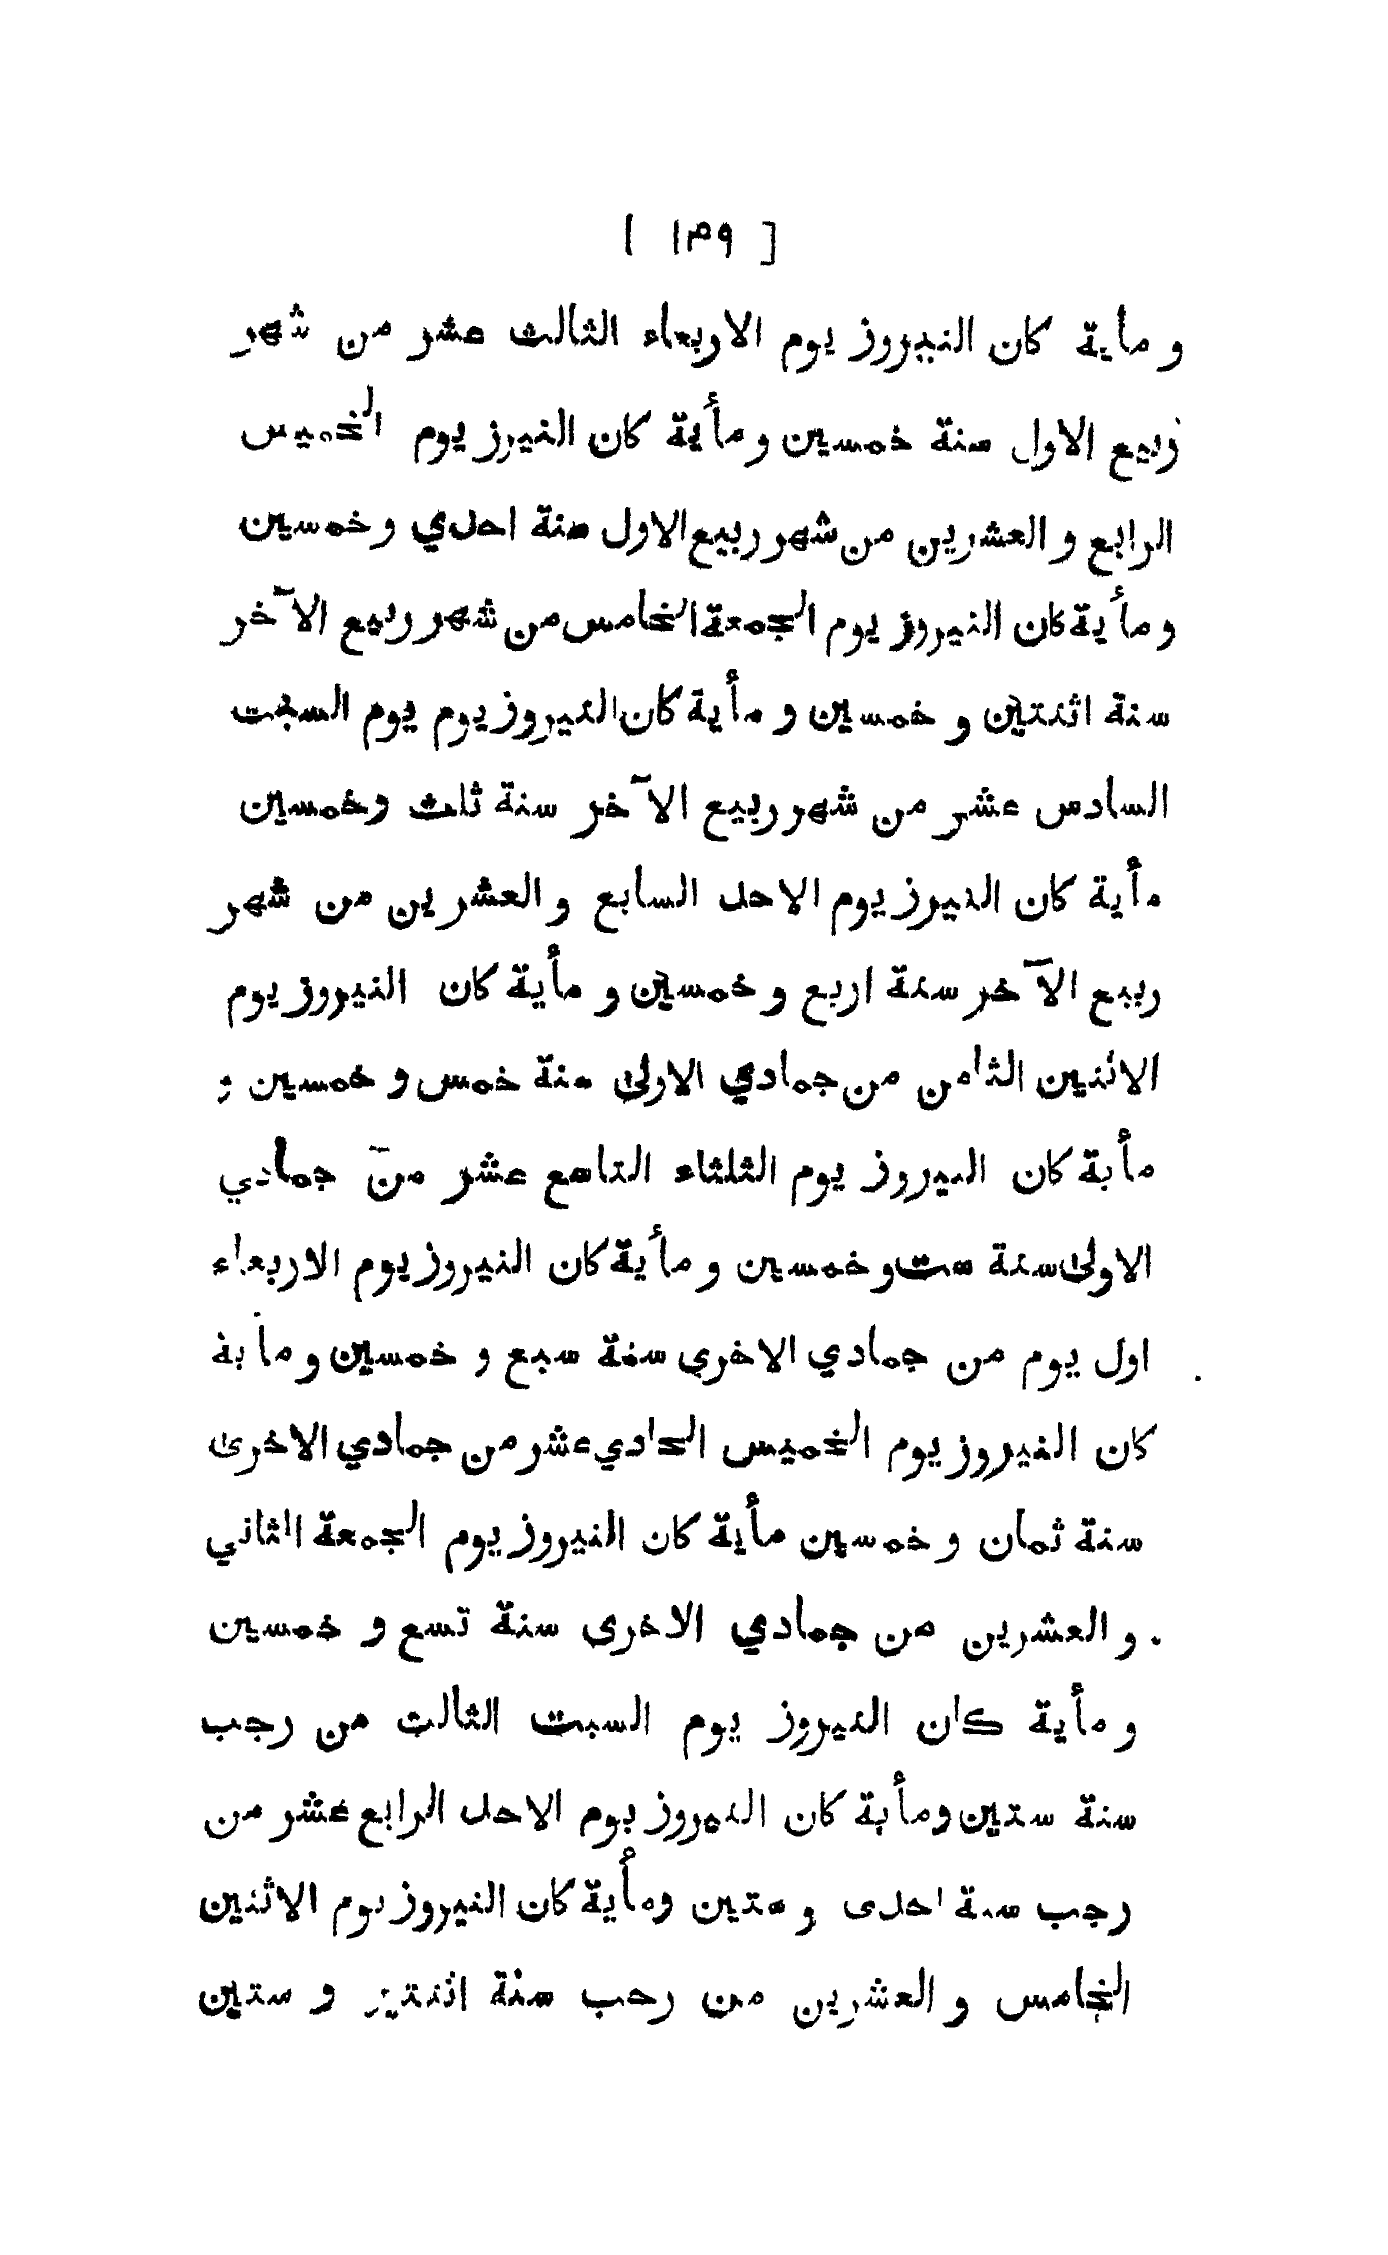 [ ١٣٩ ]
و مأية كان النيروز يوم الاربعاء الثالث عشر من شهر
ربيع الاول سنة خمسين و مأية كان النيرز يوم الخميس
الرابع و العشرين من شهر ربيع الاول سنة احدي و خمسين
و مأية كان النيروز يوم الجمعة الخامس من شهر ربيع الآخر
سنة اثنتين و خمسين و مأية كان النيروز يوم يوم السبت
السادس عشر من شهر ربيع الآخر سنة ثلث وخمسين
مأية كان النيرز يوم الاحد السابع و العشرين من شهر
ربيع الآخر سنة اربع و خمسين و مأية كان النيروز يوم
الاثنين الثامن من جمادي الاولى سنة خمس و خمسين و
مأية كان النيروز يوم الثلثاء التاسع عشر من جمادي
الاولى سنة ست و خمسين و مأية كان النيروز يوم الاربعاء
اول يوم من جمادي الاخرى سنة سبع و خمسين و مأية
كان النيروز يوم الخميس الحادي عشر من جمادي الاخرى
سنة ثمان و خمسين مأية كان النيروز يوم الجمعة الثاني
و العشرين من جمادي الاخرى سنة تسع و خمسين
و مأية كان النيروز يوم السبت الثالث من رجب
سنة ستين و مأية كان النيروز يوم الاحد الرابع عشر من
رجب سنة احدى و ستين ومأية كان النيروز يوم الاثنين
الخامس و العشرين من رجب سنة اثنتين و ستين